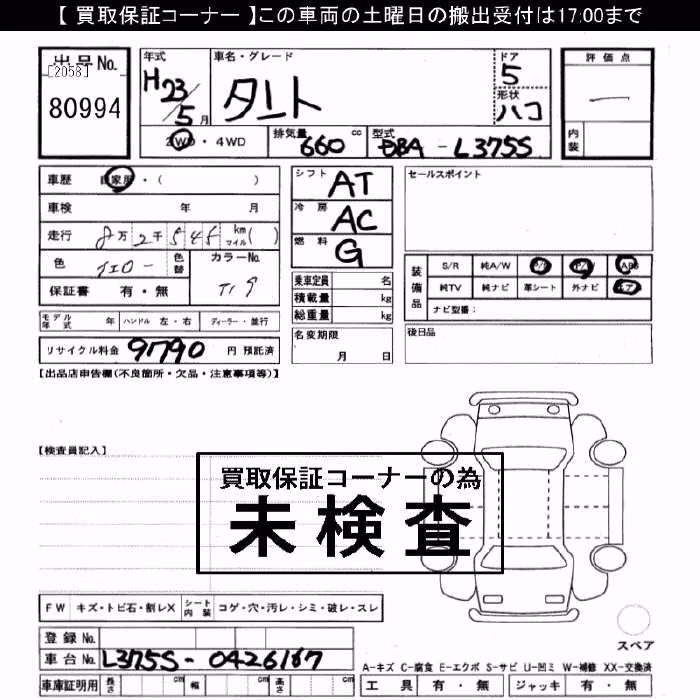 【 買取保証コーナー 】この車両の土曜日の搬出受付は17:00まで
出品No.
[2058]
80994
年式
H23/5月
車名・グレード
タント
ドア
5
形状
ハコ
評価点
一
内装
2WD・4WD
排気量 660 cc
型式 DBA - L375S
車歴 自家用・( )
車検 年 月
走行 8万2千545 km マイル( )
色 イエロー 色替
カラーNo.
保証書 有・無
シフト AT
冷房 AC
燃料 G
セールスポイント
装備品
S/R 純A/W P/S P/W ABS
純TV 純ナビ 革シート 外ナビ エア
ナビ型番:
乗車定員 名
積載量 kg
総重量 kg
モデル年式 年 ハンドル 左・右 ディーラー・並行
リサイクル料金 9790 円 預託済
名変期限
月 日
後日品
【出品店申告欄(不良箇所・欠品・注意事項等)】
【検査員記入】
買取保証コーナーの為
未検査
FW キズ・トビ石・割レX シート内装 コゲ・穴・汚レ・シミ・破レ・スレ
登録No.
車台No. L375S-0426167
車庫証明用 長さ cm 幅 cm 高さ cm
スペア
A-キズ C-腐食 E-エクボ S-サビ U-凹ミ W-補修 XX-交換済
工具 有・無 ジャッキ 有・無